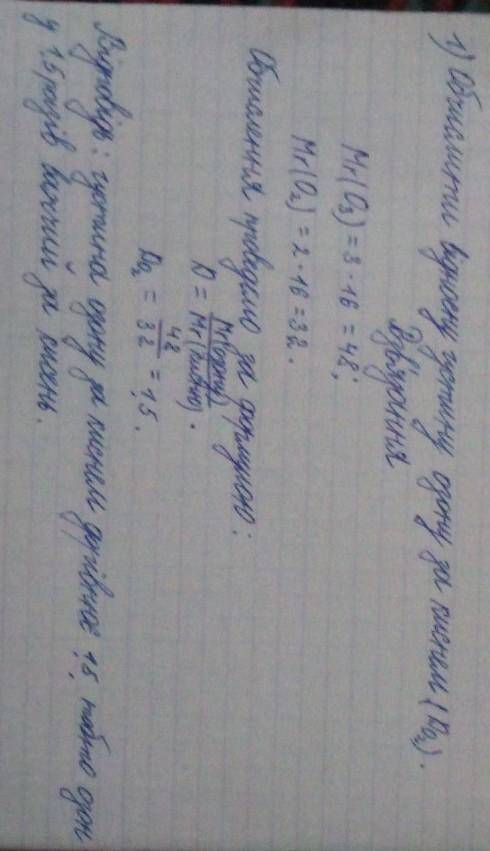 1) Обчислити відносну густину озону за киснем (D_O₂).
Розв'язання
Mr(O₃) = 3 · 16 = 48;
Mr(O₂) = 2 · 16 = 32.
Обчислення проведемо за формулою:
D = Mr(озону) / Mr(кисню).
D_O₂ = 48 / 32 = 1,5.
Відповідь: густина озону за киснем дорівнює 1,5, тобто озон
у 1,5 разів важчий за кисень.